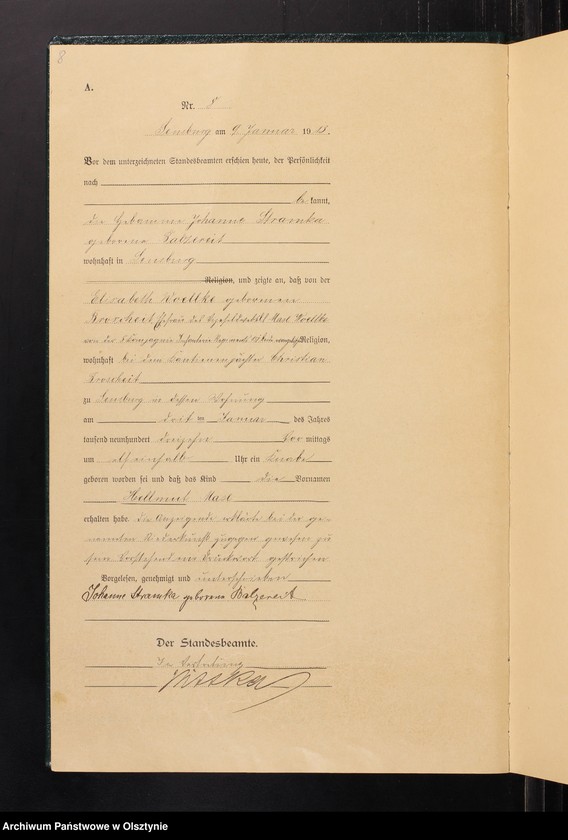 8
A.
Nr. 8
Sensburg am 9. Januar 19 13.
Vor dem unterzeichneten Standesbeamten erschien heute, der Persönlichkeit
nach
be kannt,
die Hebamme Johanne Stramka
geborene Balzereit
wohnhaft in Sensburg
Religion, und zeigte an, daß von der
Elisabeth Woelke geborenen
Ehefrau des Max Woelke
von der Kompagnie Infanterie Regiments Religion,
wohnhaft bei dem Kantinenpächter Christian
zu Sensburg in dessen Wohnung
am drit en Januar des Jahres
tausend neunhundert dreizehn Vor mittags
um elf einhalb Uhr ein Knabe
geboren worden sei und daß das Kind die Vornamen
Hellmut Max
erhalten habe. Die Anzeigende erklärte bei der ge-
nannten Niederkunft zugegen gewesen zu
sein. Vorstehend ein Druckwort gestrichen.
Vorgelesen, genehmigt und unterschrieben
Johanne Stramka geborene Balzereit
Der Standesbeamte.
In Vertretung
Archiwum Państwowe w Olsztynie